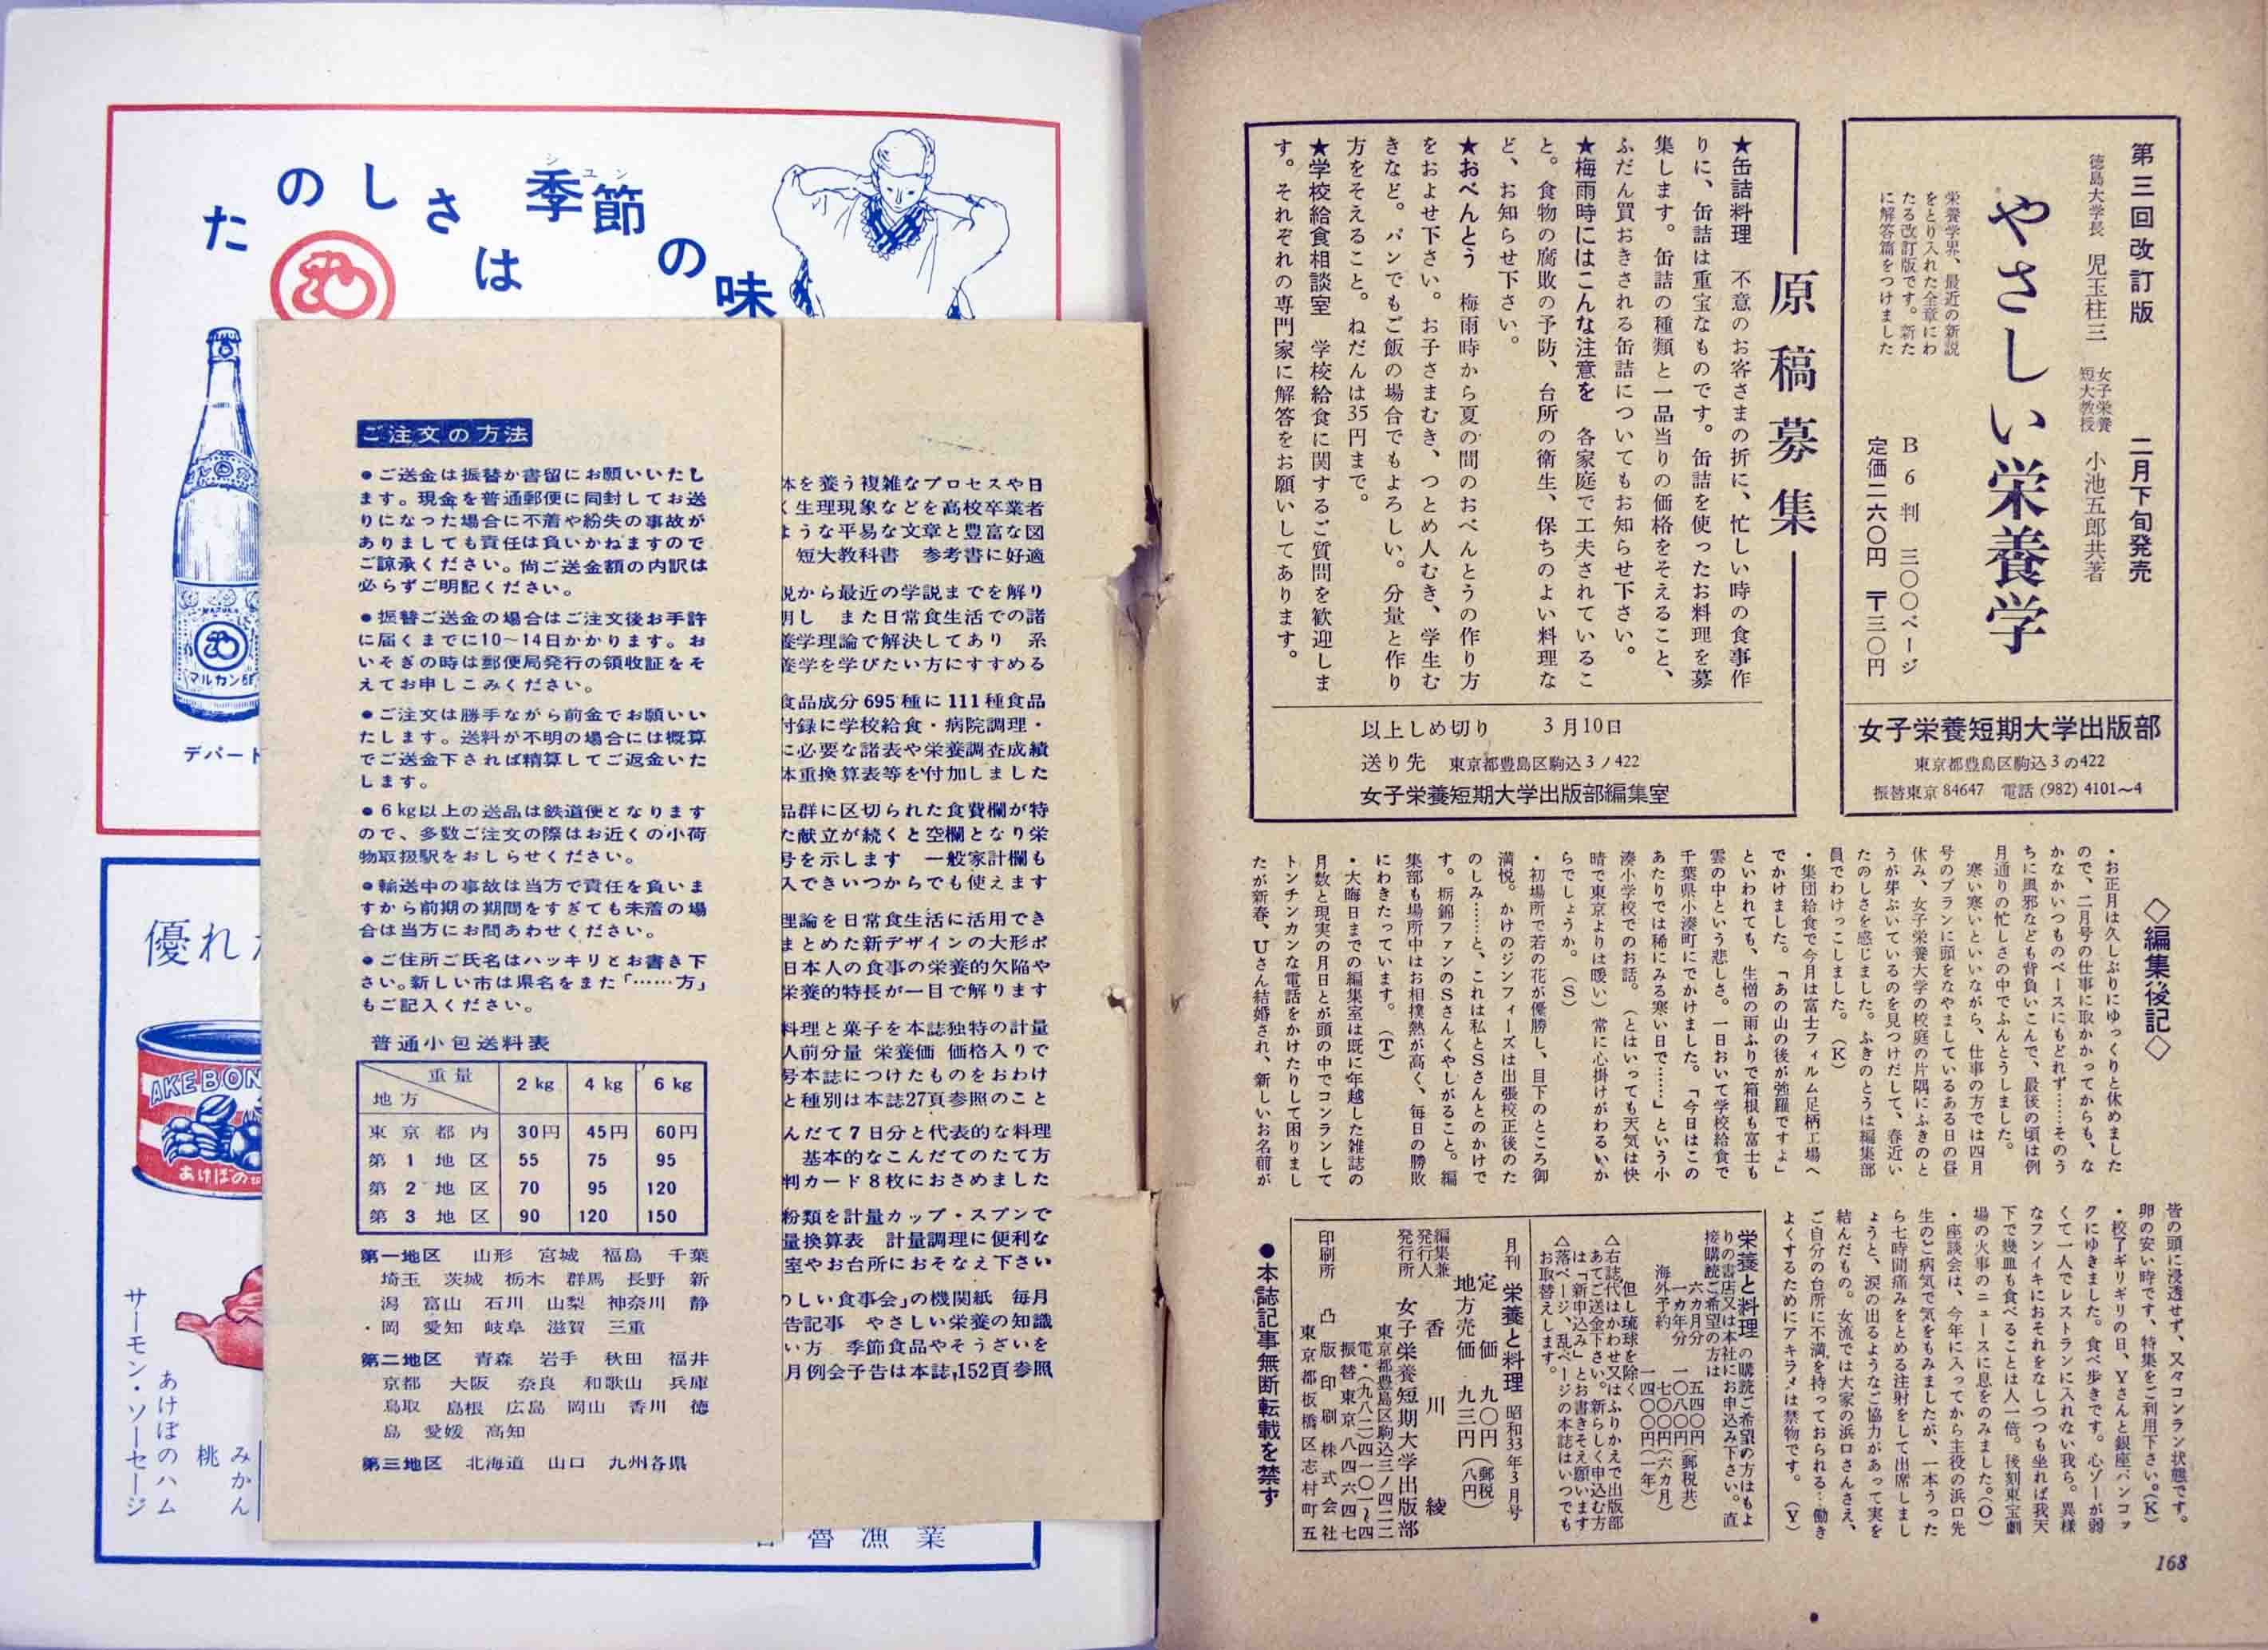 第三回改訂版　二月下旬発売
徳島大学長　児玉桂三　女子栄養短大教授　小池五郎共著
やさしい栄養学
栄養学界、最近の新説
をとり入れた全章にわ
たる改訂版です。新た
に解答篇をつけました
B6判　三〇〇ページ
定価二六〇円　〒三〇円
女子栄養短期大学出版部
東京都豊島区駒込3の422
振替東京 84647　電話 (982) 4101〜4
原稿募集
★缶詰料理　不意のお客さまの折に、忙しい時の食事作
りに、缶詰は重宝なものです。缶詰を使ったお料理を募
集します。缶詰の種類と一品当りの価格をそえること、
ふだん買おきされる缶詰についてもお知らせ下さい。
★梅雨時にはこんな注意を　各家庭で工夫されているこ
と。食物の腐敗の予防、台所の衛生、保ちのよい料理な
ど、お知らせ下さい。
★おべんとう　梅雨時から夏の間のおべんとうの作り方
をおよせ下さい。お子さまむき、つとめ人むき、学生む
きなど。パンでもご飯の場合でもよろしい。分量と作り
方をそえること。ねだんは35円まで。
★学校給食相談室　学校給食に関するご質問を歓迎しま
す。それぞれの専門家に解答をお願いしてあります。
以上しめ切り　3月10日
送り先　東京都豊島区駒込3ノ422
女子栄養短期大学出版部編集室
◇編集後記◇
・お正月は久しぶりにゆっくりと休めました
ので、二月号の仕事に取かかってからも、な
かなかいつものペースにもどれず……そのう
ちに風邪なども背負いこんで、最後の頃は例
月通りの忙しさの中でふんとうしました。
寒い寒いといいながら、仕事の方では四月
号のプランに頭をなやましているある日の昼
休み、女子栄養大学の校庭の片隅にふきのと
うが芽ぶいているのを見つけだして、春近い
たのしさを感じました。ふきのとうは編集部
員でわけっこしました。(K)
・集団給食で今月は富士フィルム足柄工場へ
でかけました。「あの山の後が強羅ですよ」
といわれても、生憎の雨ふりで箱根も富士も
雲の中という悲しさ。一日おいて学校給食で
千葉県小湊町にでかけました。「今日はこの
あたりでは稀にみる寒い日で……」という小
湊小学校でのお話。(とはいっても天気は快
晴で東京よりは暖い) 常に心掛けがわるいか
らでしょうか。(S)
・初場所で若の花が優勝し、目下のところ御
満悦。かけのジンフィーズは出張校正後のた
のしみ……と、これは私とSさんとのかけで
す。栃錦ファンのSさんくやしがること。編
集部も場所中はお相撲熱が高く、毎日の勝敗
にわきたっています。(T)
・大晦日までの編集室は既に年越した雑誌の
月数と現実の月日とが頭の中でコンランして
トンチンカンな電話をかけたりして困りまし
たが新春、Uさん結婚され、新しいお名前が
皆の頭に浸透せず、又々コンラン状態です。
卵の安い時です、特集をご利用下さい。(K)
・校了ギリギリの日、Yさんと銀座バンコッ
クにゆきました。食べ歩きです。心ゾーが弱
くて一人でレストランに入れない我ら。異様
なフンイキにおそれをなしつつも坐れば我天
下で幾皿も食べることは人一倍。後刻東宝劇
場の火事のニュースに息をのみました。(O)
・座談会は、今年に入ってから主役の浜口先
生のご病気で気をもみましたが、一本うった
ら七時間痛みをとめる注射をして出席しまし
ょうと、涙の出るようなご協力があって実を
結んだもの。女流では大家の浜口さんさえ、
ご自分の台所に不満を持っておられる…働き
よくするためにアキラメは禁物です。(Y)
栄養と料理の購読ご希望の方はもよ
りの書店又は本社にお申込み下さい。直
接購読ご希望の方は
六カ月分　五四〇円(郵税共)
一カ年分　一〇八〇円
海外予約　七〇〇円(六カ月)
一四〇〇円(一年)
但し琉球を除く
△右誌代はかわせ又はふりかえで出版部
あてご送金下さい。新らしく申込む方
は「新申込み」とお書きそえ願います
△落ページ、乱ページの本誌はいつでも
お取替えします。
月刊　栄養と料理　昭和33年3月号
定価　九〇円(郵税)
地方売価　九三円(八円)
編集兼発行人　香川綾
発行所　女子栄養短期大学出版部
東京都豊島区駒込三ノ四二二
電・(九八二)四一〇一〜四
振替東京八四六四七
印刷所　凸版印刷株式会社
東京都板橋区志村町五
●本誌記事無断転載を禁ず
168
たのしさは季節の味
シュン
マルカン酢
デパート
優れ
AKEBON
あけぼの
みかん
桃
あけぼのハム
サーモン・ソーセージ
魯漁業
ご注文の方法
●ご送金は振替か書留にお願いいたし
ます。現金を普通郵便に同封してお送
りになった場合に不着や紛失の事故が
ありましても責任は負いかねますので
ご諒承ください。尚ご送金額の内訳は
必らずご明記ください。
●振替ご送金の場合はご注文後お手許
に届くまでに10〜14日かかります。お
いそぎの時は郵便局発行の領收証をそ
えてお申しこみください。
●ご注文は勝手ながら前金でお願いい
たします。送料が不明の場合には概算
でご送金下されば精算してご返金いた
します。
●6kg以上の送品は鉄道便となります
ので、多数ご注文の際はお近くの小荷
物取扱駅をおしらせください。
●輸送中の事故は当方で責任を負いま
すから前期の期間をすぎても未着の場
合は当方にお問あわせください。
●ご住所ご氏名はハッキリとお書き下
さい。新しい市は県名をまた「……方」
もご記入ください。
普通小包送料表
重量　2 kg　4 kg　6 kg
地方
東京都内　30円　45円　60円
第1地区　55　75　95
第2地区　70　95　120
第3地区　90　120　150
第一地区　山形　宮城　福島　千葉
埼玉　茨城　栃木　群馬　長野　新
潟　富山　石川　山梨　神奈川　静
岡　愛知　岐阜　滋賀　三重
第二地区　青森　岩手　秋田　福井
京都　大阪　奈良　和歌山　兵庫
鳥取　島根　広島　岡山　香川　徳
島　愛媛　高知
第三地区　北海道　山口　九州各県
体を養う複雑なプロセスや日
く生理現象などを高校卒業者
ような平易な文章と豊富な図
短大教科書　参考書に好適
説から最近の学説までを解り
明し　また日常食生活での諸
養学理論で解決してあり　系
養学を学びたい方にすすめる
食品成分695種に111種食品
付録に学校給食・病院調理・
に必要な諸表や栄養調査成績
体重換算表等を付加しました
品群に区切られた食費欄が特
た献立が続くと空欄となり栄
号を示します　一般家計欄も
入できいつからでも使えます
理論を日常食生活に活用でき
まとめた新デザインの大形ポ
日本人の食事の栄養的欠陥や
栄養的特長が一目で解ります
料理と菓子を本誌独特の計量
人前分量　栄養価　価格入りで
号本誌につけたものをおわけ
と種別は本誌27頁参照のこと
んだて7日分と代表的な料理
基本的なこんだてのたて方
判カード8枚におさめました
粉類を計量カップ・スプンで
量換算表　計量調理に便利な
室やお台所におそなえ下さい
のしい食事会」の機関紙　毎月
告記事　やさしい栄養の知識
い方　季節食品やそうざいを
月例会予告は本誌152頁参照